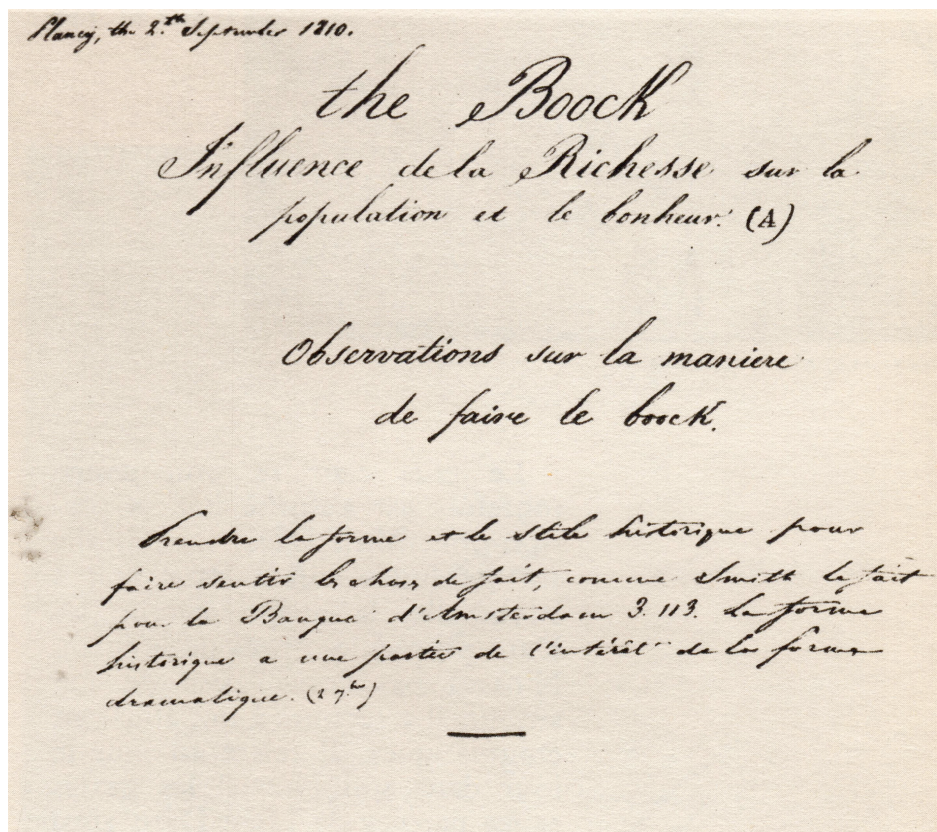 Plancy, the 2.th September 1810.
the Boock
Influence de la Richesse sur la
population et le bonheur. (A)
Observations sur la maniere
de faire le boock.
Prendre la forme et le stile historique pour
faire sentir les choses de fait, comme Smith le fait
pour la Banque d'Amsterdam 3. 113. La forme
historique a une partie de l'intérêt de la forme
dramatique. (27.bre)